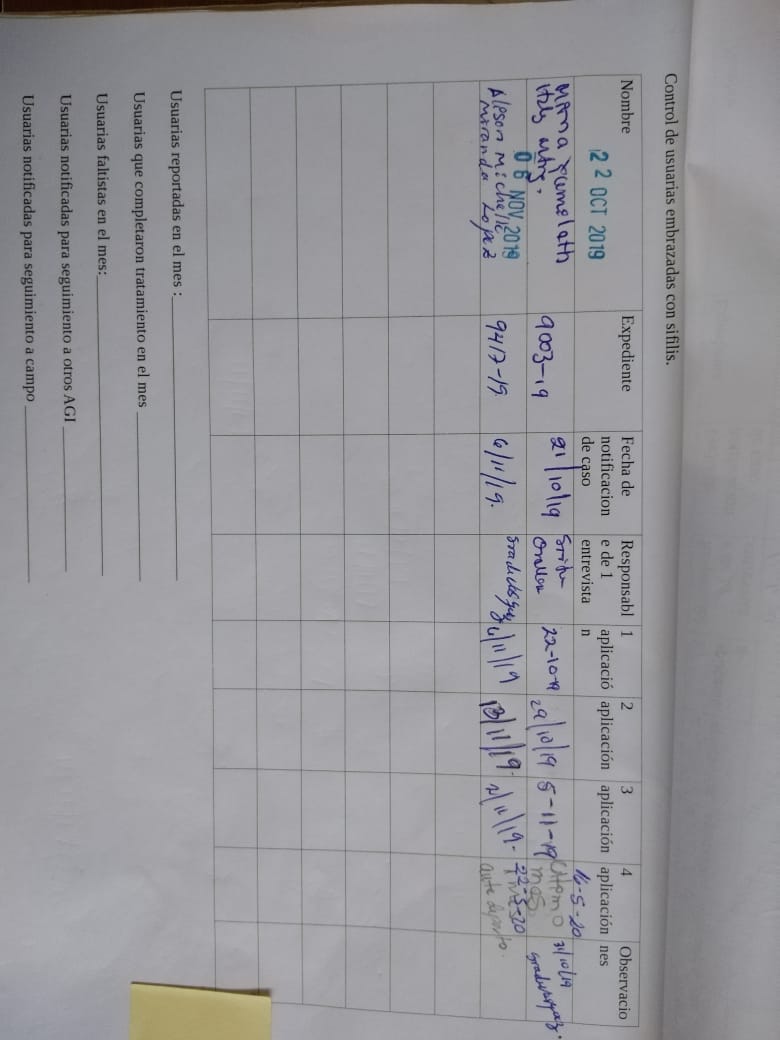 Control de usuarias embrazadas con sifilis.
Nombre
Expediente
Fecha de
notificacion
de caso
Responsabl
e de 1
entrevista
1
aplicació
n
2
aplicación
3
aplicación
4
aplicación
Observacio
nes
22 OCT 2019
9003-19
21/10/19
22-10-19
29/10/19
5-11-19
16-5-20
31/10/19
06 NOV 2019
Alison Michelle
Miranda Lopez
9417-19.
6/11/19.
6/11/19
13/11/19.
22-5-20
ante
Usuarias reportadas en el mes :
Usuarias que completaron tratamiento en el mes
Usuarias faltistas en el mes:
Usuarias notificadas para seguimiento a otros AGI
Usuarias notificadas para seguimiento a campo